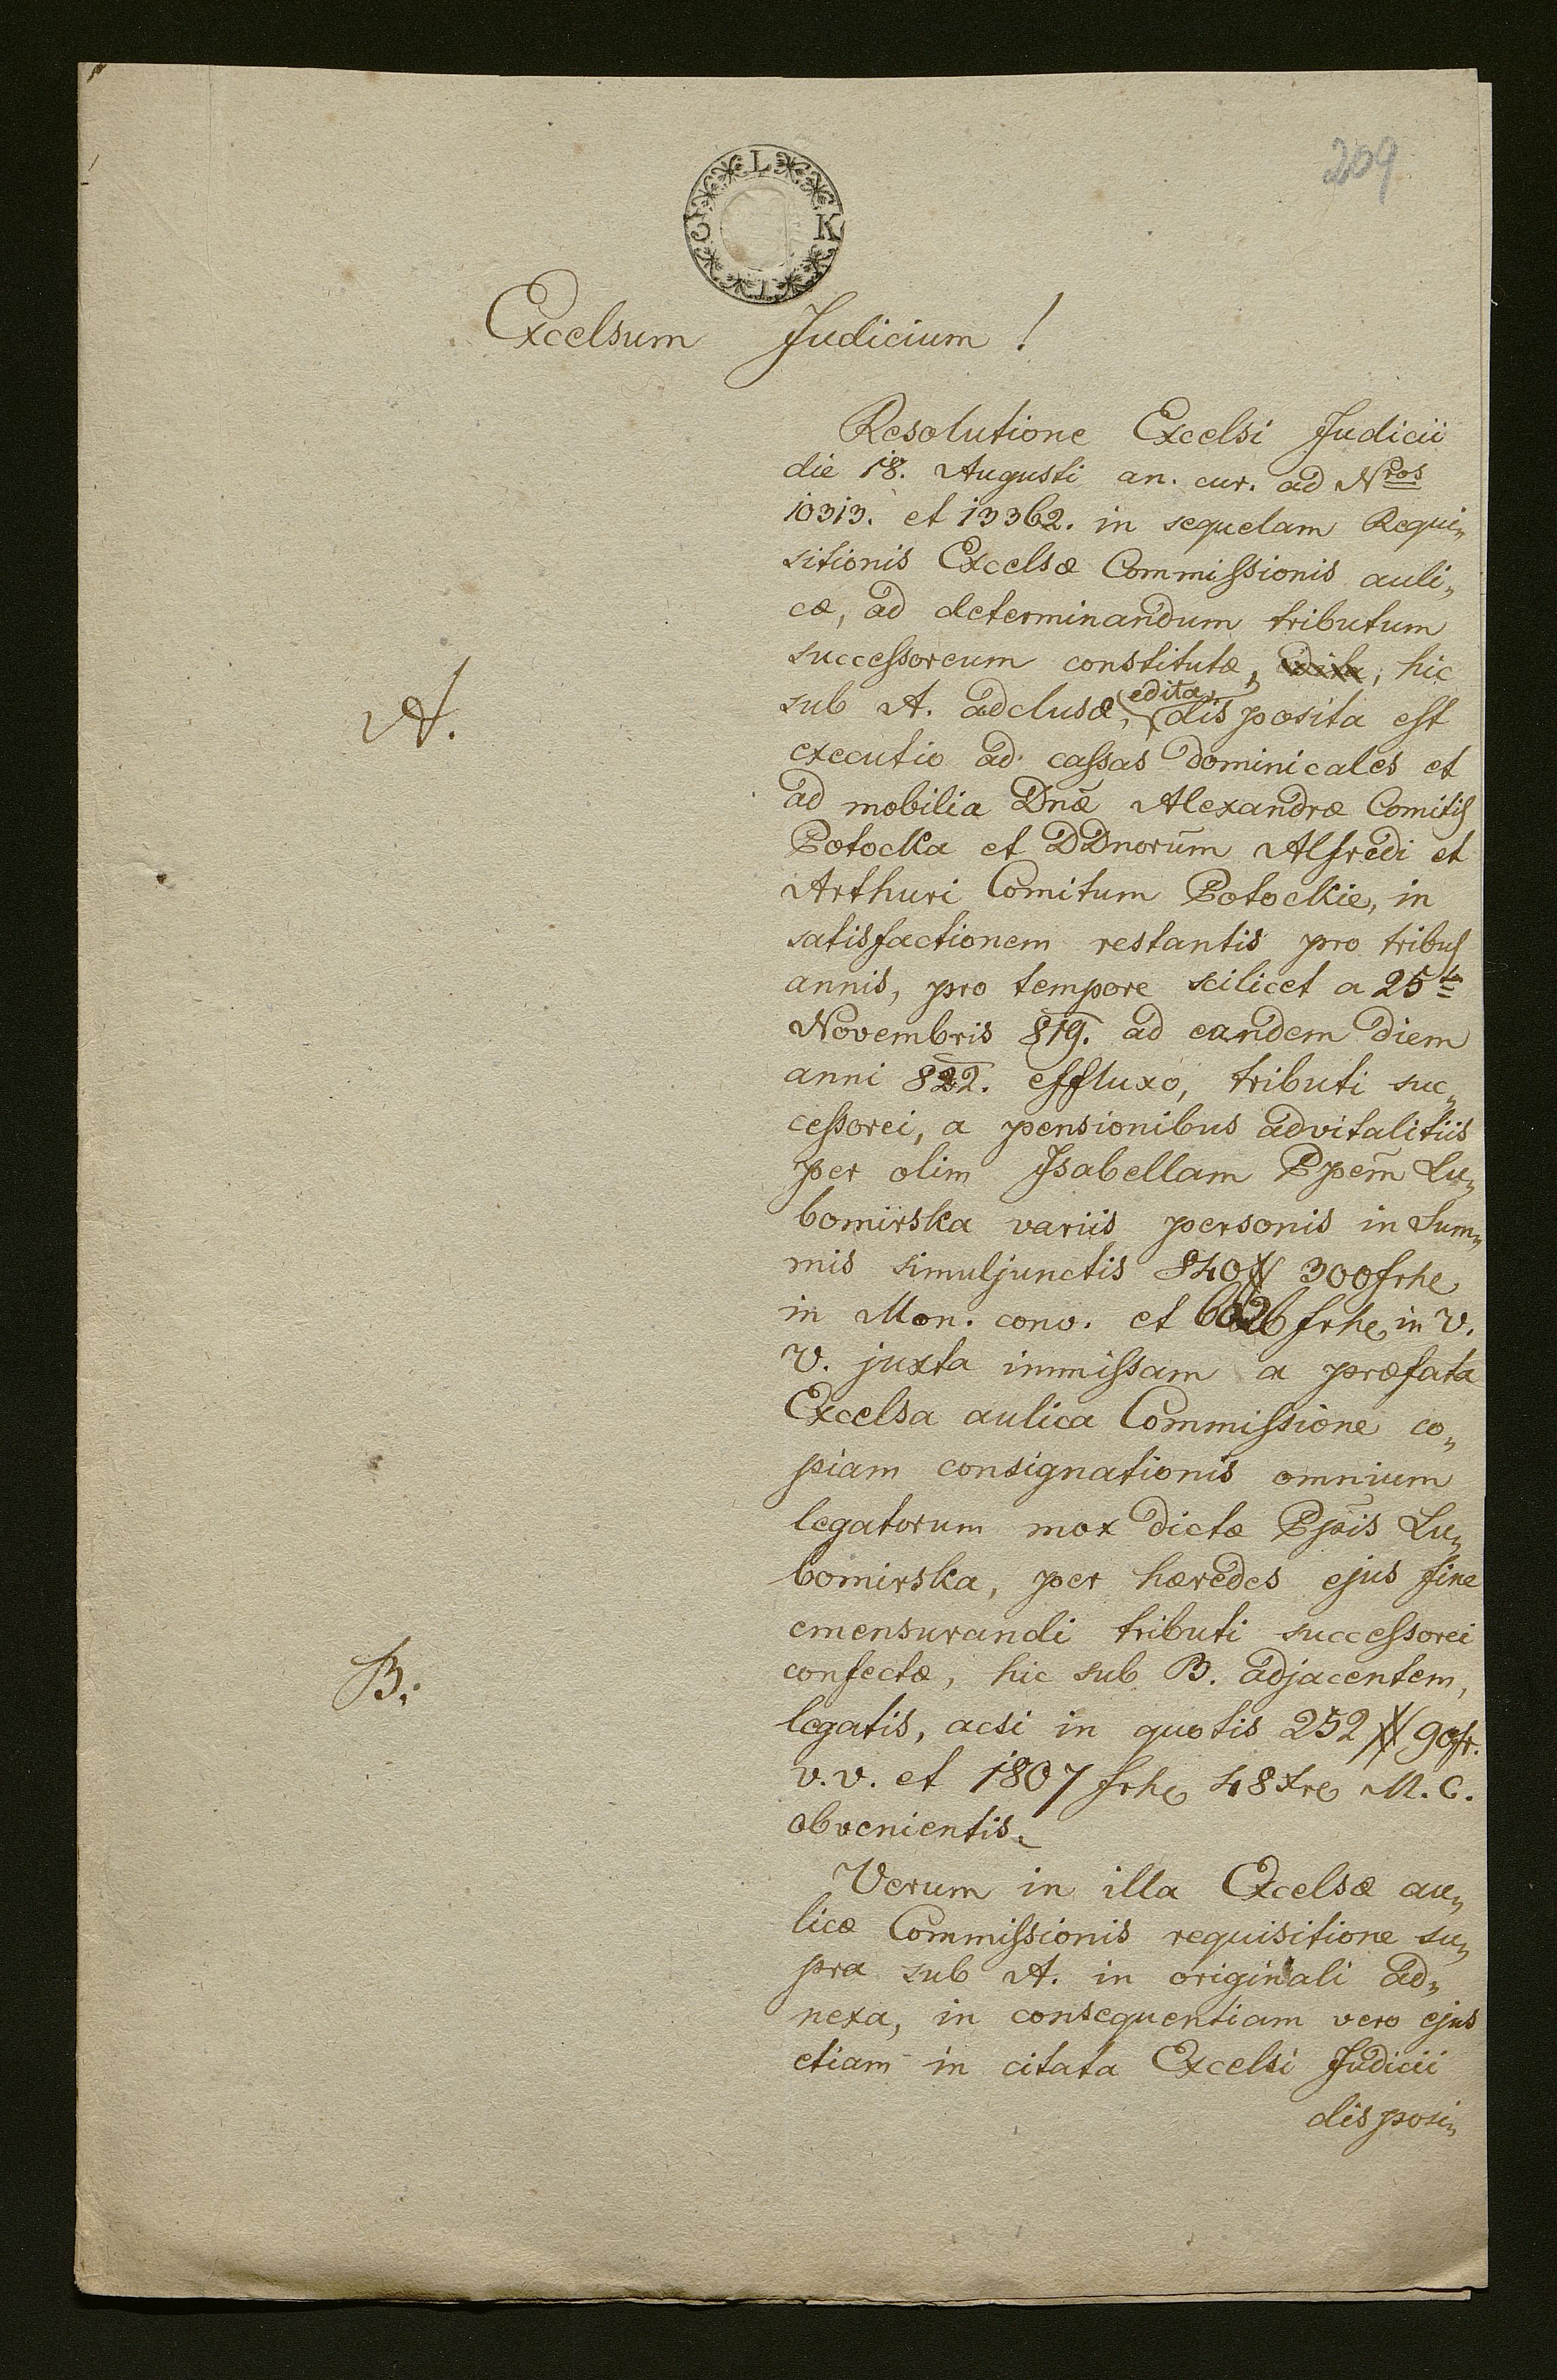 209
L
C K
I
Excelsum Judicium !
Resolutione Excelsi Judicii
die 18. Augusti an. cur. ad Nros
10313. et 13362. in sequelam Requi„
sitionis Excelsæ Commissionis auli„
cæ, ad determinandum tributum
successoreum constitutæ, edita, hic
A.
sub A. adclusæ, edita, disposita est
executio ad cassas dominicales et
ad mobilia Dnæ Alexandræ Comitis
Potocka et DDnorum Alfredi et
Arthuri Comitum Potockie, in
satisfactionem restantis pro tribus
annis, pro tempore scilicet a 25ta
Novembris 819. ad eandem diem
anni 822. effluxo, tributi suc„
cessorei, a pensionibus advitalitiis
per olim Isabellam Ppem Lu„
bomirska variis personis in Sum„
mis simuljunctis 840# 300 frhe
in Mon. conv. et 6026 frhe in V.
V. juxta immissam a præfata
Excelsa aulica Commissione co„
piam consignationis omnium
legatorum mox dictæ Ppis Lu„
bomirska, per hæredes ejus fine
emensurandi tributi successorei
B.
confectæ, hic sub B. adjacentem,
legatis, acsi in quotis 252 # 90 fr.
v.v. et 1807 frhe 48 Xre M. C.
obvenientis.
Verum in illa Excelsæ au„
licæ Commissionis requisitione su„
pra sub A. in originali ad„
nexa, in consequentiam vero ejus
etiam in citata Excelsi Judicii
disposi„